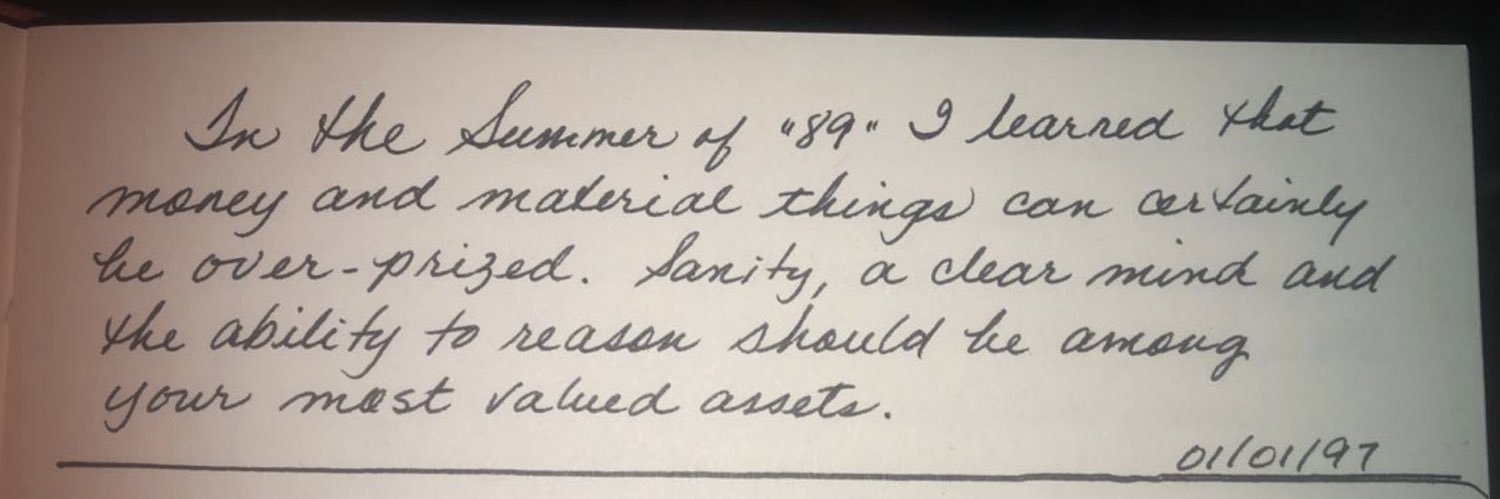 In the Summer of "89" I learned that
money and material things can certainly
be over-prized. Sanity, a clear mind and
the ability to reason should be among
your most valued assets.
01/01/97